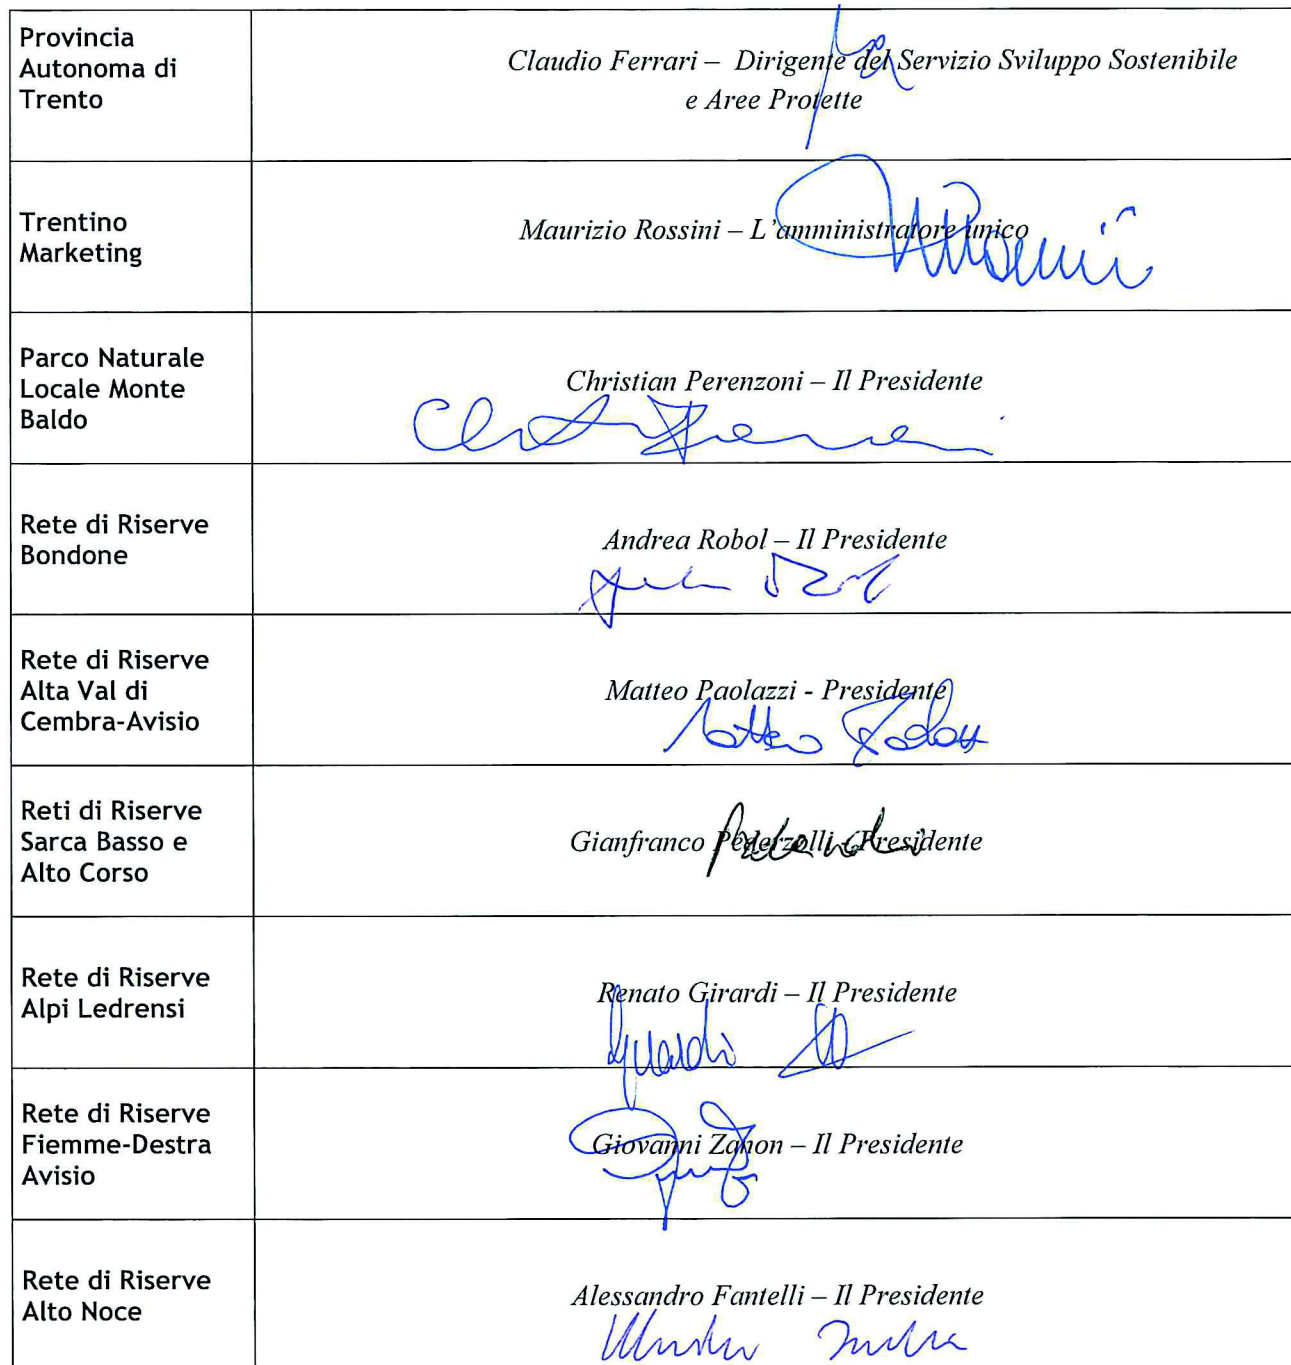 Provincia
Autonoma di
Trento
Claudio Ferrari – Dirigente del Servizio Sviluppo Sostenibile
e Aree Protette
Trentino
Marketing
Maurizio Rossini – L'amministratore unico
Parco Naturale
Locale Monte
Baldo
Christian Perenzoni – Il Presidente
Rete di Riserve
Bondone
Andrea Robol – Il Presidente
Rete di Riserve
Alta Val di
Cembra-Avisio
Matteo Paolazzi - Presidente
Reti di Riserve
Sarca Basso e
Alto Corso
Gianfranco Pederzolli - Presidente
Rete di Riserve
Alpi Ledrensi
Renato Girardi – Il Presidente
Rete di Riserve
Fiemme-Destra
Avisio
Giovanni Zanon – Il Presidente
Rete di Riserve
Alto Noce
Alessandro Fantelli – Il Presidente